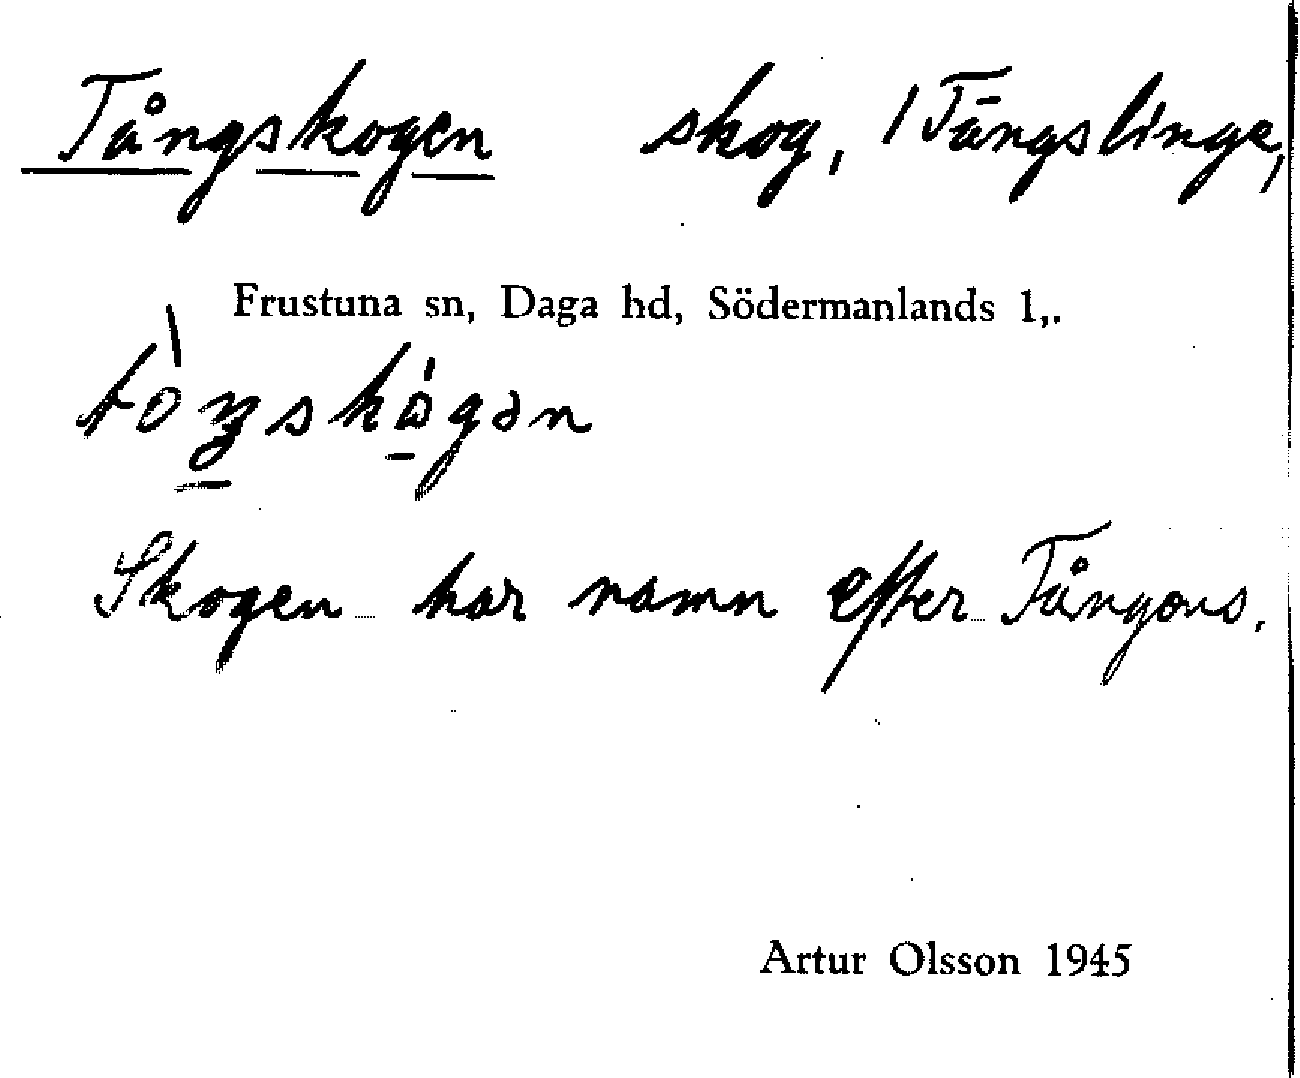 Tångskogen skog, / Tängslinge,
Frustuna sn, Daga hd, Södermanlands l,.
Skogen har namn efter Tångons.
Artur Olsson 1945